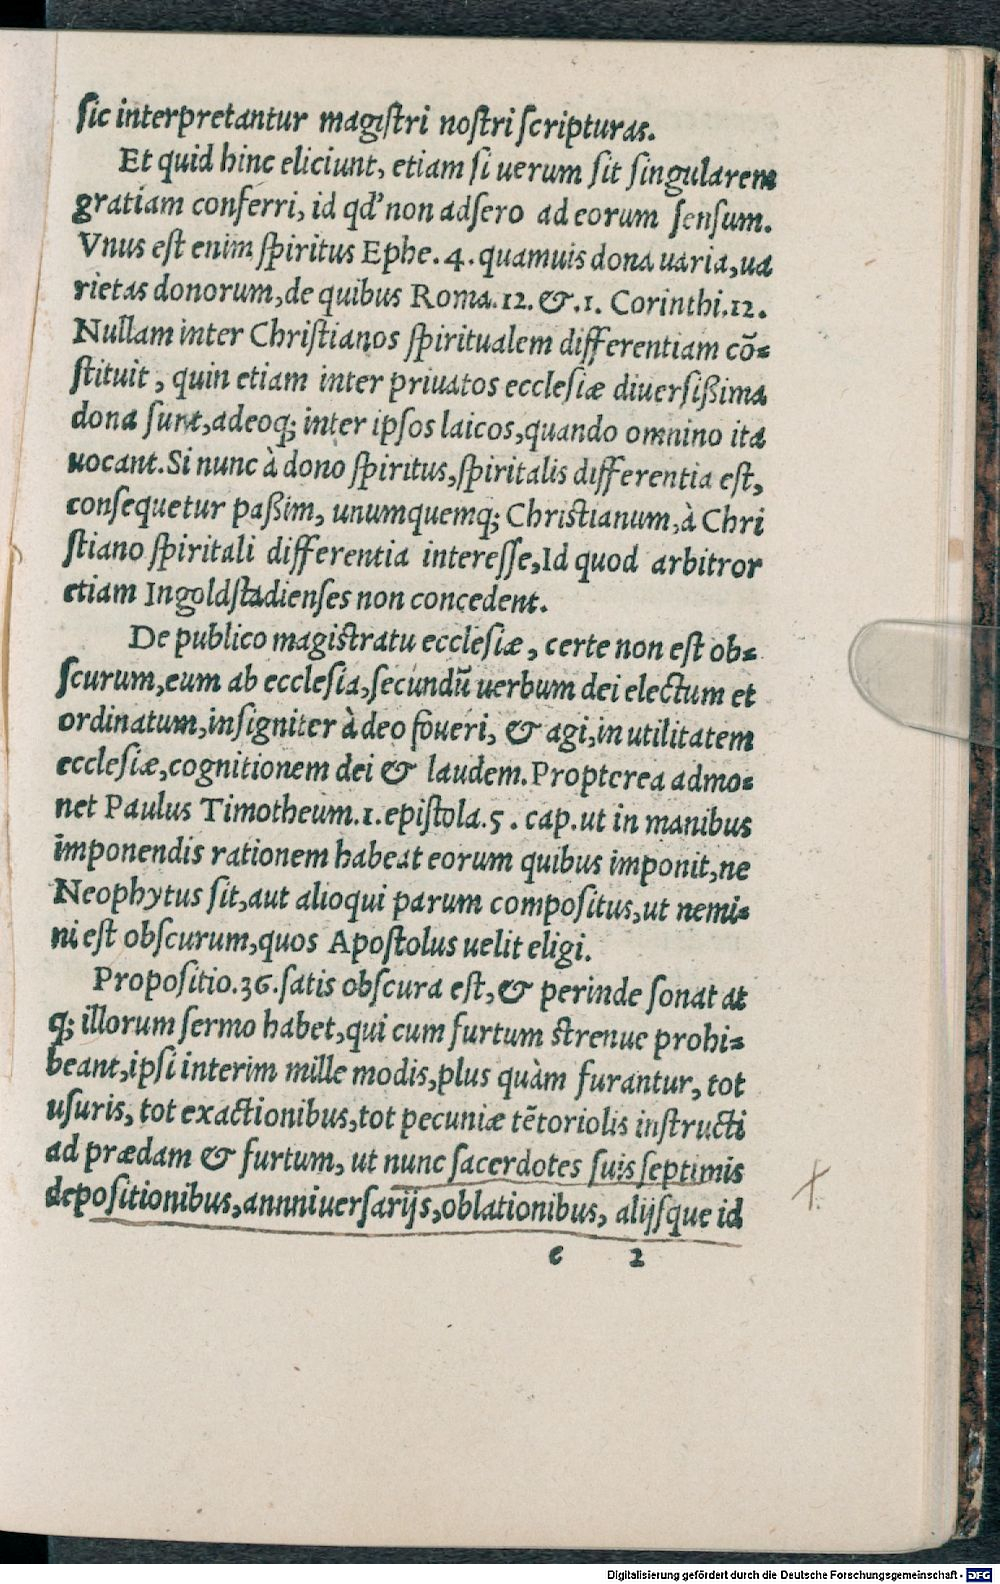 sic interpretantur magistri nostri scripturas.
Et quid hinc eliciunt, etiam si uerum sit singularem
gratiam conferri, id qd' non adsero ad eorum sensum.
Vnus est enim spiritus Ephe. 4. quamuis dona uaria, ua
rietas donorum, de quibus Roma. 12. &. 1. Corinthi. 12.
Nullam inter Christianos spiritualem differentiam cõ=
stituit, quin etiam inter priuatos ecclesiæ diuersißima
dona sunt, adeoq; inter ipsos laicos, quando omnino ita
uocant. Si nunc à dono spiritus, spiritalis differentia est,
consequetur paßim, unumquemq; Christianum, à Chri
stiano spiritali differentia interesse, Id quod arbitror
etiam Ingoldstadienses non concedent.
De publico magistratu ecclesiæ, certe non est ob=
scurum, eum ab ecclesia, secundũ uerbum dei electum et
ordinatum, insigniter à deo foueri, & agi, in utilitatem
ecclesiæ, cognitionem dei & laudem. Propterea admo=
net Paulus Timotheum. 1. epistola. 5. cap. ut in manibus
imponendis rationem habeat eorum quibus imponit, ne
Neophytus sit, aut alioqui parum compositus, ut nemi=
ni est obscurum, quos Apostolus uelit eligi.
Propositio. 36. satis obscura est, & perinde sonat at
q; illorum sermo habet, qui cum furtum strenue prohi=
beant, ipsi interim mille modis, plus quàm furantur, tot
usuris, tot exactionibus, tot pecuniæ tẽtoriolis instructi
ad prædam & furtum, ut nunc sacerdotes suis septimis
depositionibus, annniuersarijs, oblationibus, alijsque id
e 2
Digitalisierung gefördert durch die Deutsche Forschungsgemeinschaft - DFG